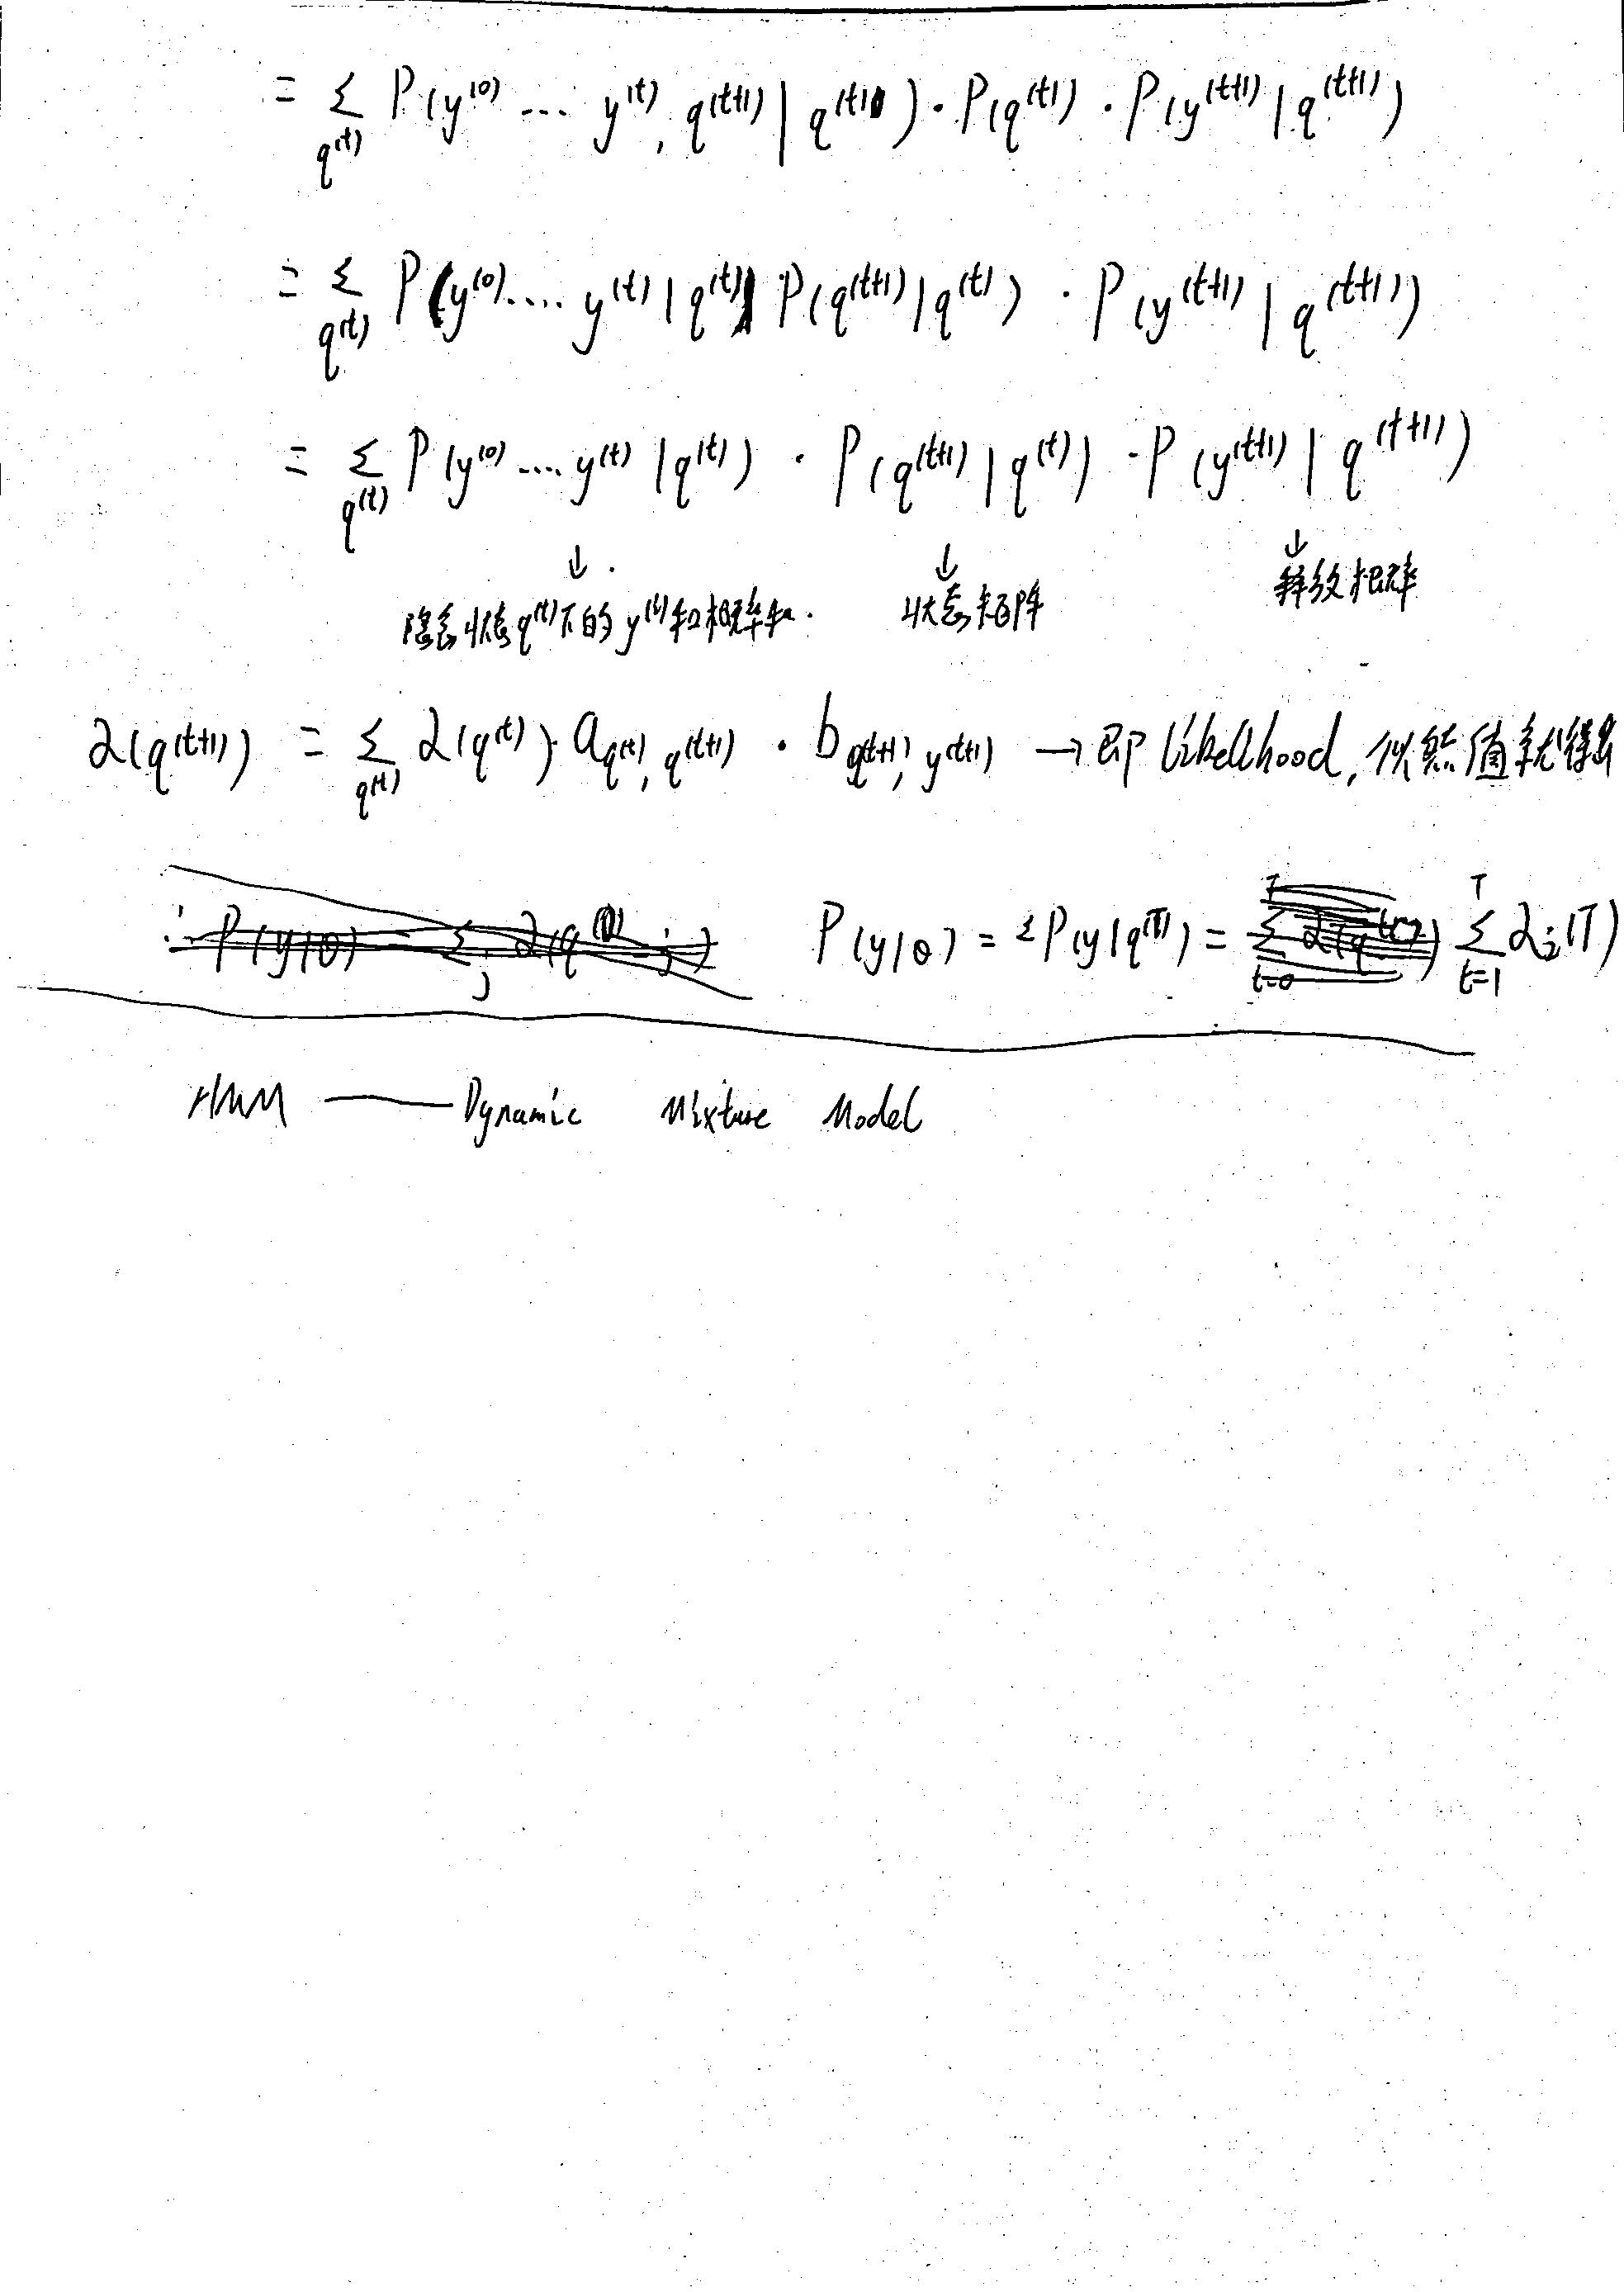 = Σ_{q^{(t)}} P(y^{(0)} ... y^{(t)}, q^{(t+1)} | q^{(t)}) · P(q^{(t)}) · P(y^{(t+1)} | q^{(t+1)})
= Σ_{q^{(t)}} P(y^{(0)} .... y^{(t)} | q^{(t)}) P(q^{(t+1)} | q^{(t)}) · P(y^{(t+1)} | q^{(t+1)})
= Σ_{q^{(t)}} P(y^{(0)} .... y^{(t)} | q^{(t)}) · P(q^{(t+1)} | q^{(t)}) · P(y^{(t+1)} | q^{(t+1)})
↓ ↓ ↓
隐含状态 q^{(t)} 下的 y^{(t)} 概率和. 状态矩阵 释放概率
α(q^{(t+1)}) = Σ_{q^{(t)}} α(q^{(t)}) · a_{q^{(t)}, q^{(t+1)}} · b_{q^{(t+1)}, y^{(t+1)}} → 即 Likelihood, 似然值就得出
P(y|θ) = Σ P(y|q^{(T)}) = Σ_{t=1}^{T} α_j(T)
HMM —— Dynamic Mixture Model